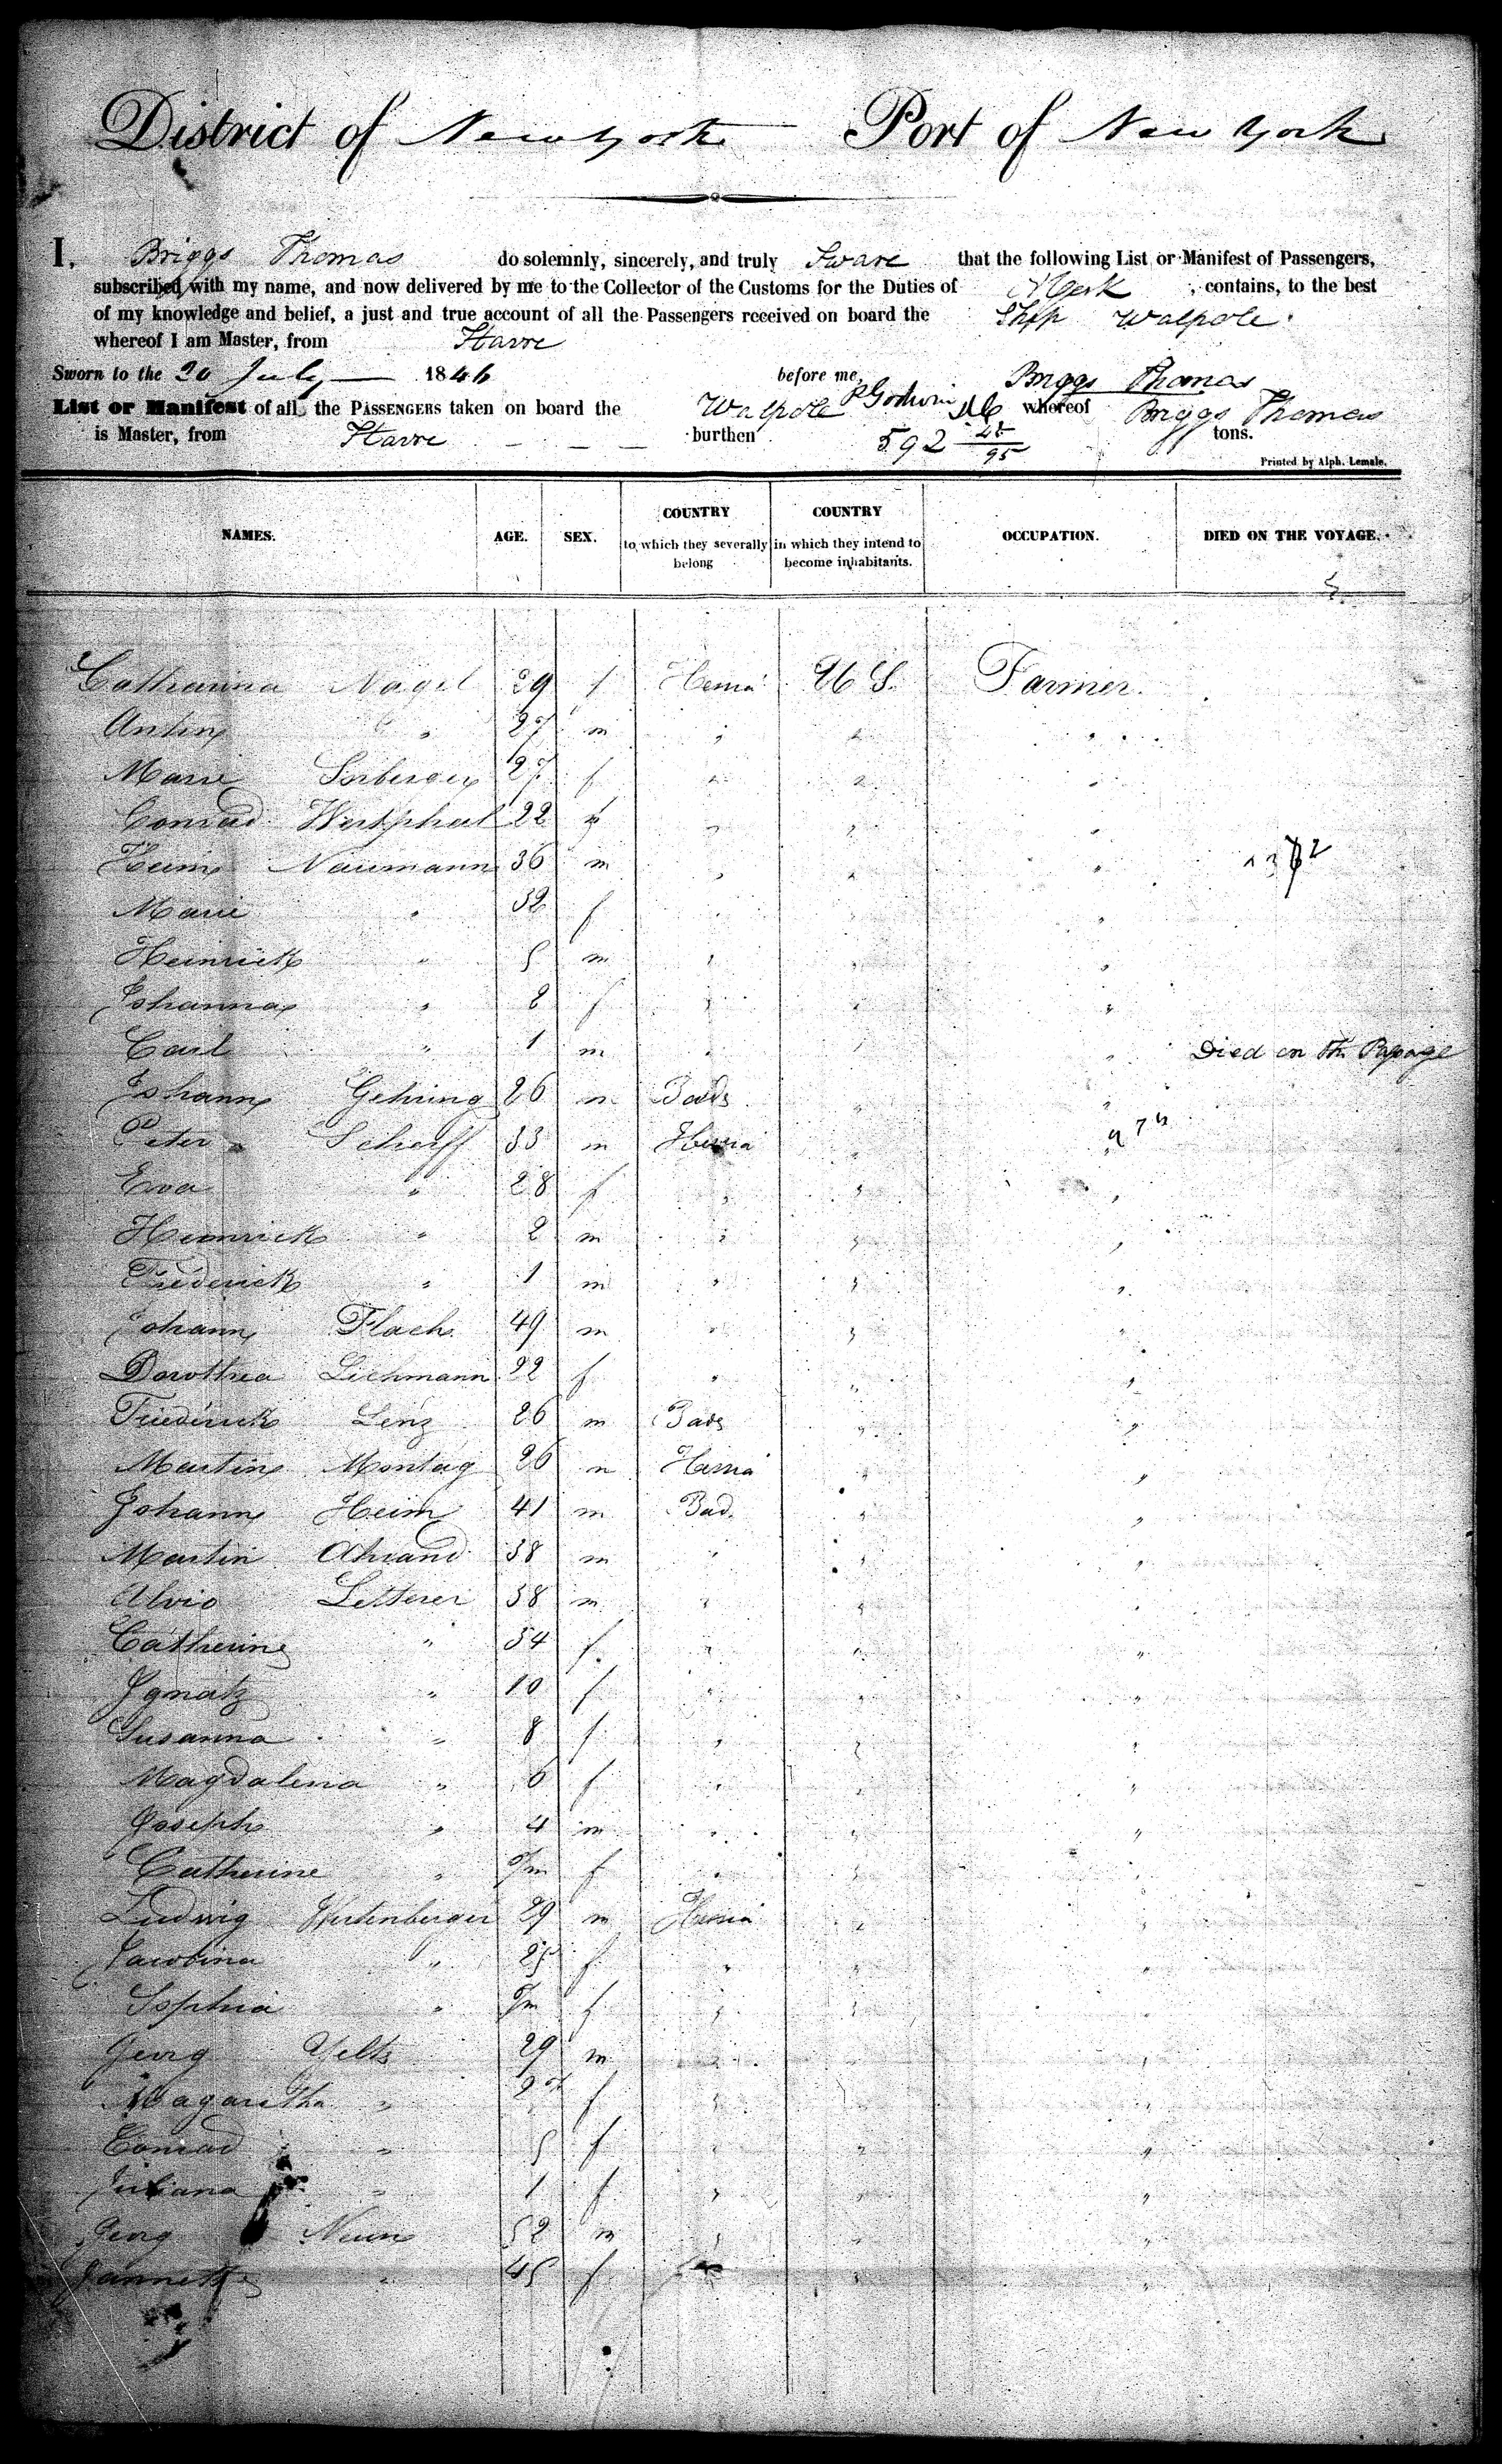 District of New York Port of New York
I, Briggs Thomas do solemnly, sincerely, and truly Sware that the following List or Manifest of Passengers,
subscribed with my name, and now delivered by me to the Collector of the Customs for the Duties of N York , contains, to the best
of my knowledge and belief, a just and true account of all the Passengers received on board the Ship Walpole
whereof I am Master, from Havre
Sworn to the 20 July 1846 before me, Briggs Thomas
List or Manifest of all the PASSENGERS taken on board the Walpole whereof Briggs Thomas
is Master, from Havre burthen 592 tons.
Printed by Alph. Lemale.
NAMES. AGE. SEX. COUNTRY to which they severally belong COUNTRY in which they intend to become inhabitants. OCCUPATION. DIED ON THE VOYAGE.
Catharina Nagel 29 f U S. Farmer.
Anton " 27 m " " "
Marie 27 f " " "
Conrad Westphal 22 " " "
Naumann 36 m " " "
Marie " 32 f " " "
Heinrich " 5 m " " "
Johanna " 2 f " " "
Carl " 1 m " " " Died on the Passage
Johann Gehring 26 m " "
Peter Scherff 33 m Hessia " "
Eva " 28 f " " "
Heinrick " 2 m " " "
Friederick " 1 m " " "
Johann Flach 49 m " " "
Dorothea Lichmann 22 f " " "
Friederick Lenz 26 m " "
Martin Montag 26 m Hessia " "
Johann Heim 41 m Bad. " "
Martin 38 m " " "
Letterer 38 m " " "
Catherine " 34 f " " "
Ignatz " 10 f " " "
Susanna " 8 f " " "
Magdalena " 6 f " " "
Joseph " 4 m " " "
Catherine " f " " "
Ludwig Wertenberger 29 m Hessia " "
Jacobina " 25 f " " "
Sophia " f " " "
Georg Yelts 29 m " " "
Magaretha " 27 f " " "
Conrad " 5 f " " "
Juliana " 1 f " " "
Georg 52 m " " "
Jannette " 45 f " "